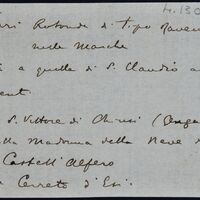 4.130
Rotonde di tipo Raven
nelle Marche
a quelle di S. Claudio a
ent.
S. Vittore di Chiusi (Genga
lla Madonna della Neve
Castell'Alfero
Cerreto d'Esi.